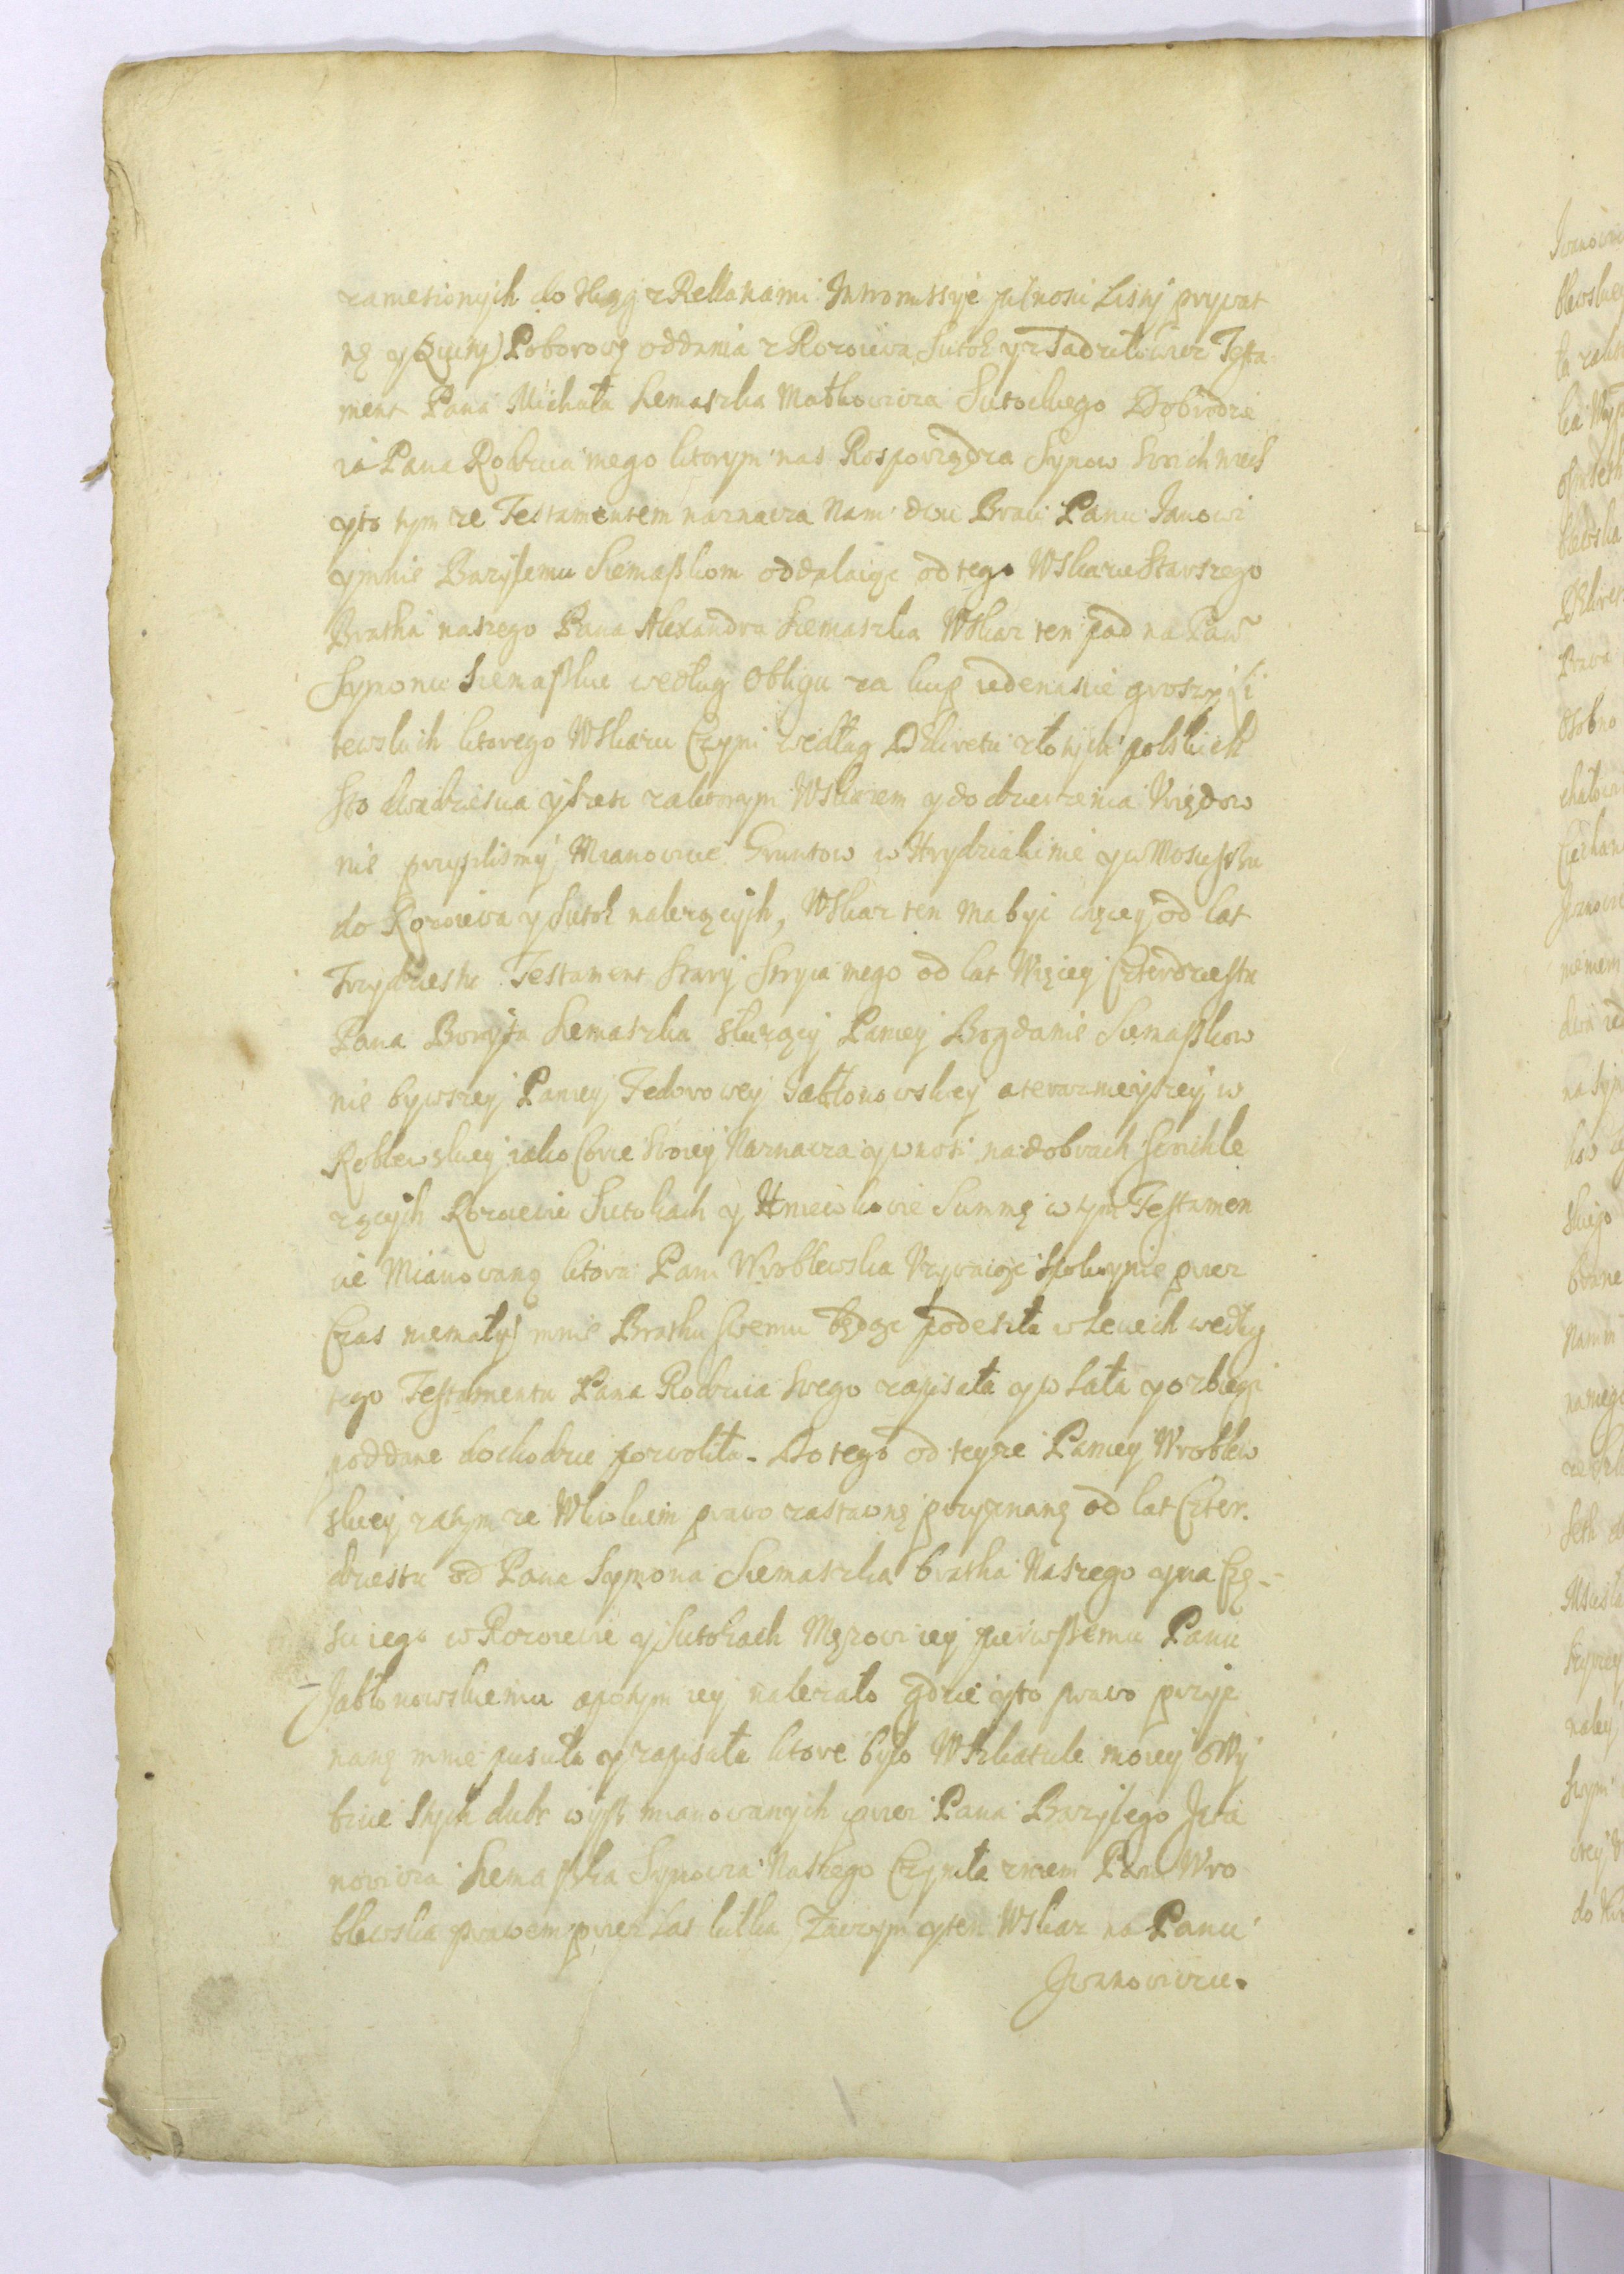 zamesionych do Xięg z Rellanami Intromissyie jasnosci Listy prywat
nę y Qwity Poborowę oddania z Rozoiewa Sutok y z Tadzilowicz Testa
ment Pana Michała Siemaszka Matkowicza Sutockiego Dobrodzie
ia Pana Rodzica mego ktorym nas Rosporządza Synow swoich wech
y to tym ze Testamentem naznacza Nam dwu Braci Panu Janowi
y mnie Bazylemu Siemaszkom oddalaiąc od tego Wskazu Starszego
Bratka naszego Pana Alexandra Siemaszka Wskaz ten pad na Panu
Symonu Siemaszku według Obligu za kup iedenascie groszy Li
tewskich ktorego Wskazu Czyni według Dekretu złotych polskich
sto dwadziescia y szesc za ktorym Wskazem y do dzierzenia Vrzędow
nie przyszlismy Mianowicie Gruntow w Hrydziakinie y w Mosieyszku
do Rozoiewa y Sutok nalezących, Wskaz ten ma byc więcey od lat
Trzydziestu Testament Stary Stryia mego od lat Więcey Czterdziestu
Pana Boryssa Siemaszka słuzący Paniey Bogdanie Siemaszkow
nie bywszey Paniey Fedorowey Jabłonowskiey a terazmieyszey w
Roblewskiey iako Corce swoiey Naznacza y wnosi na dobrach swoich le
zących Rozoiewie Sutokach y Hniewkowie Summę w tym Testamen
cie Mianowaną ktora Pani Wroblewska Vzywaiąc spokoynie przez
Czas niemały mnie Bratku swemu będąc podeszła w Leciech według
tego Testamentu Pana Rodzica swego zapisała y wlała y o zbiegi
poddane dochodzic pozwoliła. Do tego od teyze Paniey Wroblew
skiey za tym ze Wlewkiem prawo zastawnę przyznanę od lat Czter.
dziestu od Pana Symona Siemaszka bratka Naszego y na Czę-
sci iego w Rozoiewie y Sutokach Męzowi iey pierwszemu Panu
Jabłonowskiemu a potym iey nalezało gdzie y to prawo przyz
nanę mnie pusciła y zapisała ktore było W Szkatule moiey o Wy
bicie s tych dobr wysz mianowanych przez Pana Bazylego Iwa
nowicza Siemaszka Synowca Naszego Czyniła zniem Pani Wro
blewska prawem przez lat kilka, Zaczym y ten Wskaz na Panu
Iwanowiczu.